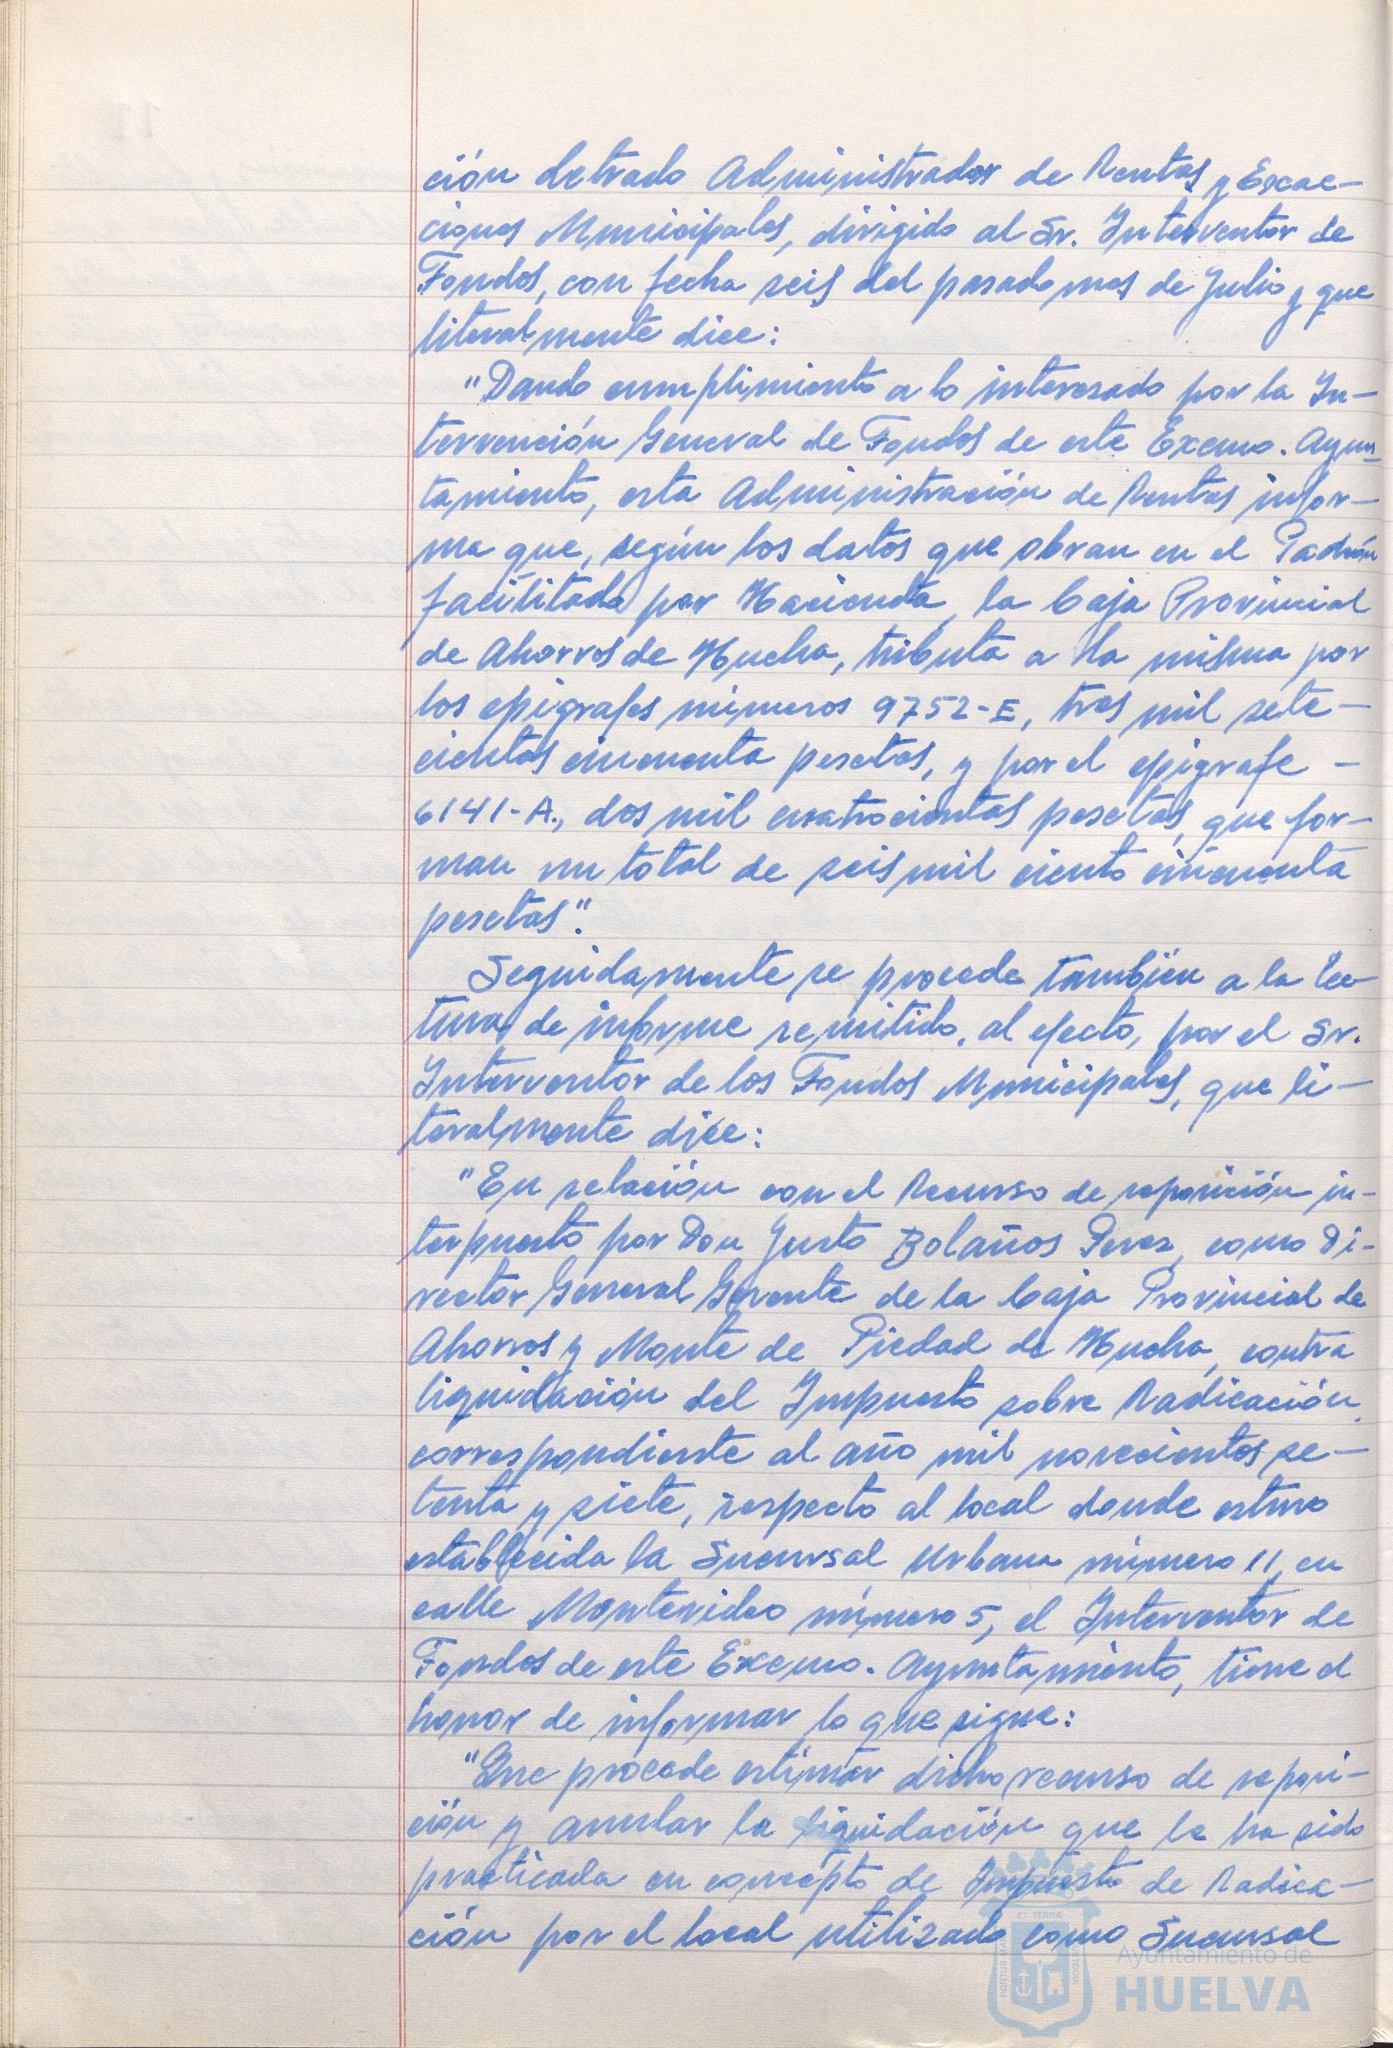 ción letrado Administrador de Rentas y Exac-
ciones Municipales, dirigido al Sr. Interventor de
Fondos, con fecha seis del pasado mes de Julio y que
literalmente dice:
"Dando cumplimiento a lo interesado por la In-
tervención General de Fondos de este Excmo. Ayun-
tamiento, esta Administración de Rentas infor-
ma que, según los datos que obran en el Padrón
facilitado por Hacienda, la Caja Provincial
de Ahorros de Huelva, tributa a la misma por
los epígrafes números 9752-E, tres mil sete-
cientas cincuenta pesetas, y por el epígrafe -
6141-A., dos mil cuatrocientas pesetas, que for-
man un total de seis mil ciento cincuenta
pesetas".
Seguidamente se procede también a la lec-
tura de informe remitido, al efecto, por el Sr.
Interventor de los Fondos Municipales, que li-
teralmente dice:
"En relación con el Recurso de reposición in-
terpuesto por Don Justo Bolaños Perez, como Di-
rector General Gerente de la Caja Provincial de
Ahorros y Monte de Piedad de Huelva, contra
liquidación del Impuesto sobre Radicación,
correspondiente al año mil novecientos se-
tenta y siete, respecto al local donde estuvo
establecida la Sucursal Urbana número 11, en
calle Montevideo número 5, el Interventor de
Fondos de este Excmo. Ayuntamiento, tiene el
honor de informar lo que sigue:
"Que procede estimar dicho recurso de reposi-
ción y anular la liquidación que le ha sido
practicada en concepto de Impuesto de Radica-
ción por el local utilizado como Sucursal
Ayuntamiento de
HUELVA